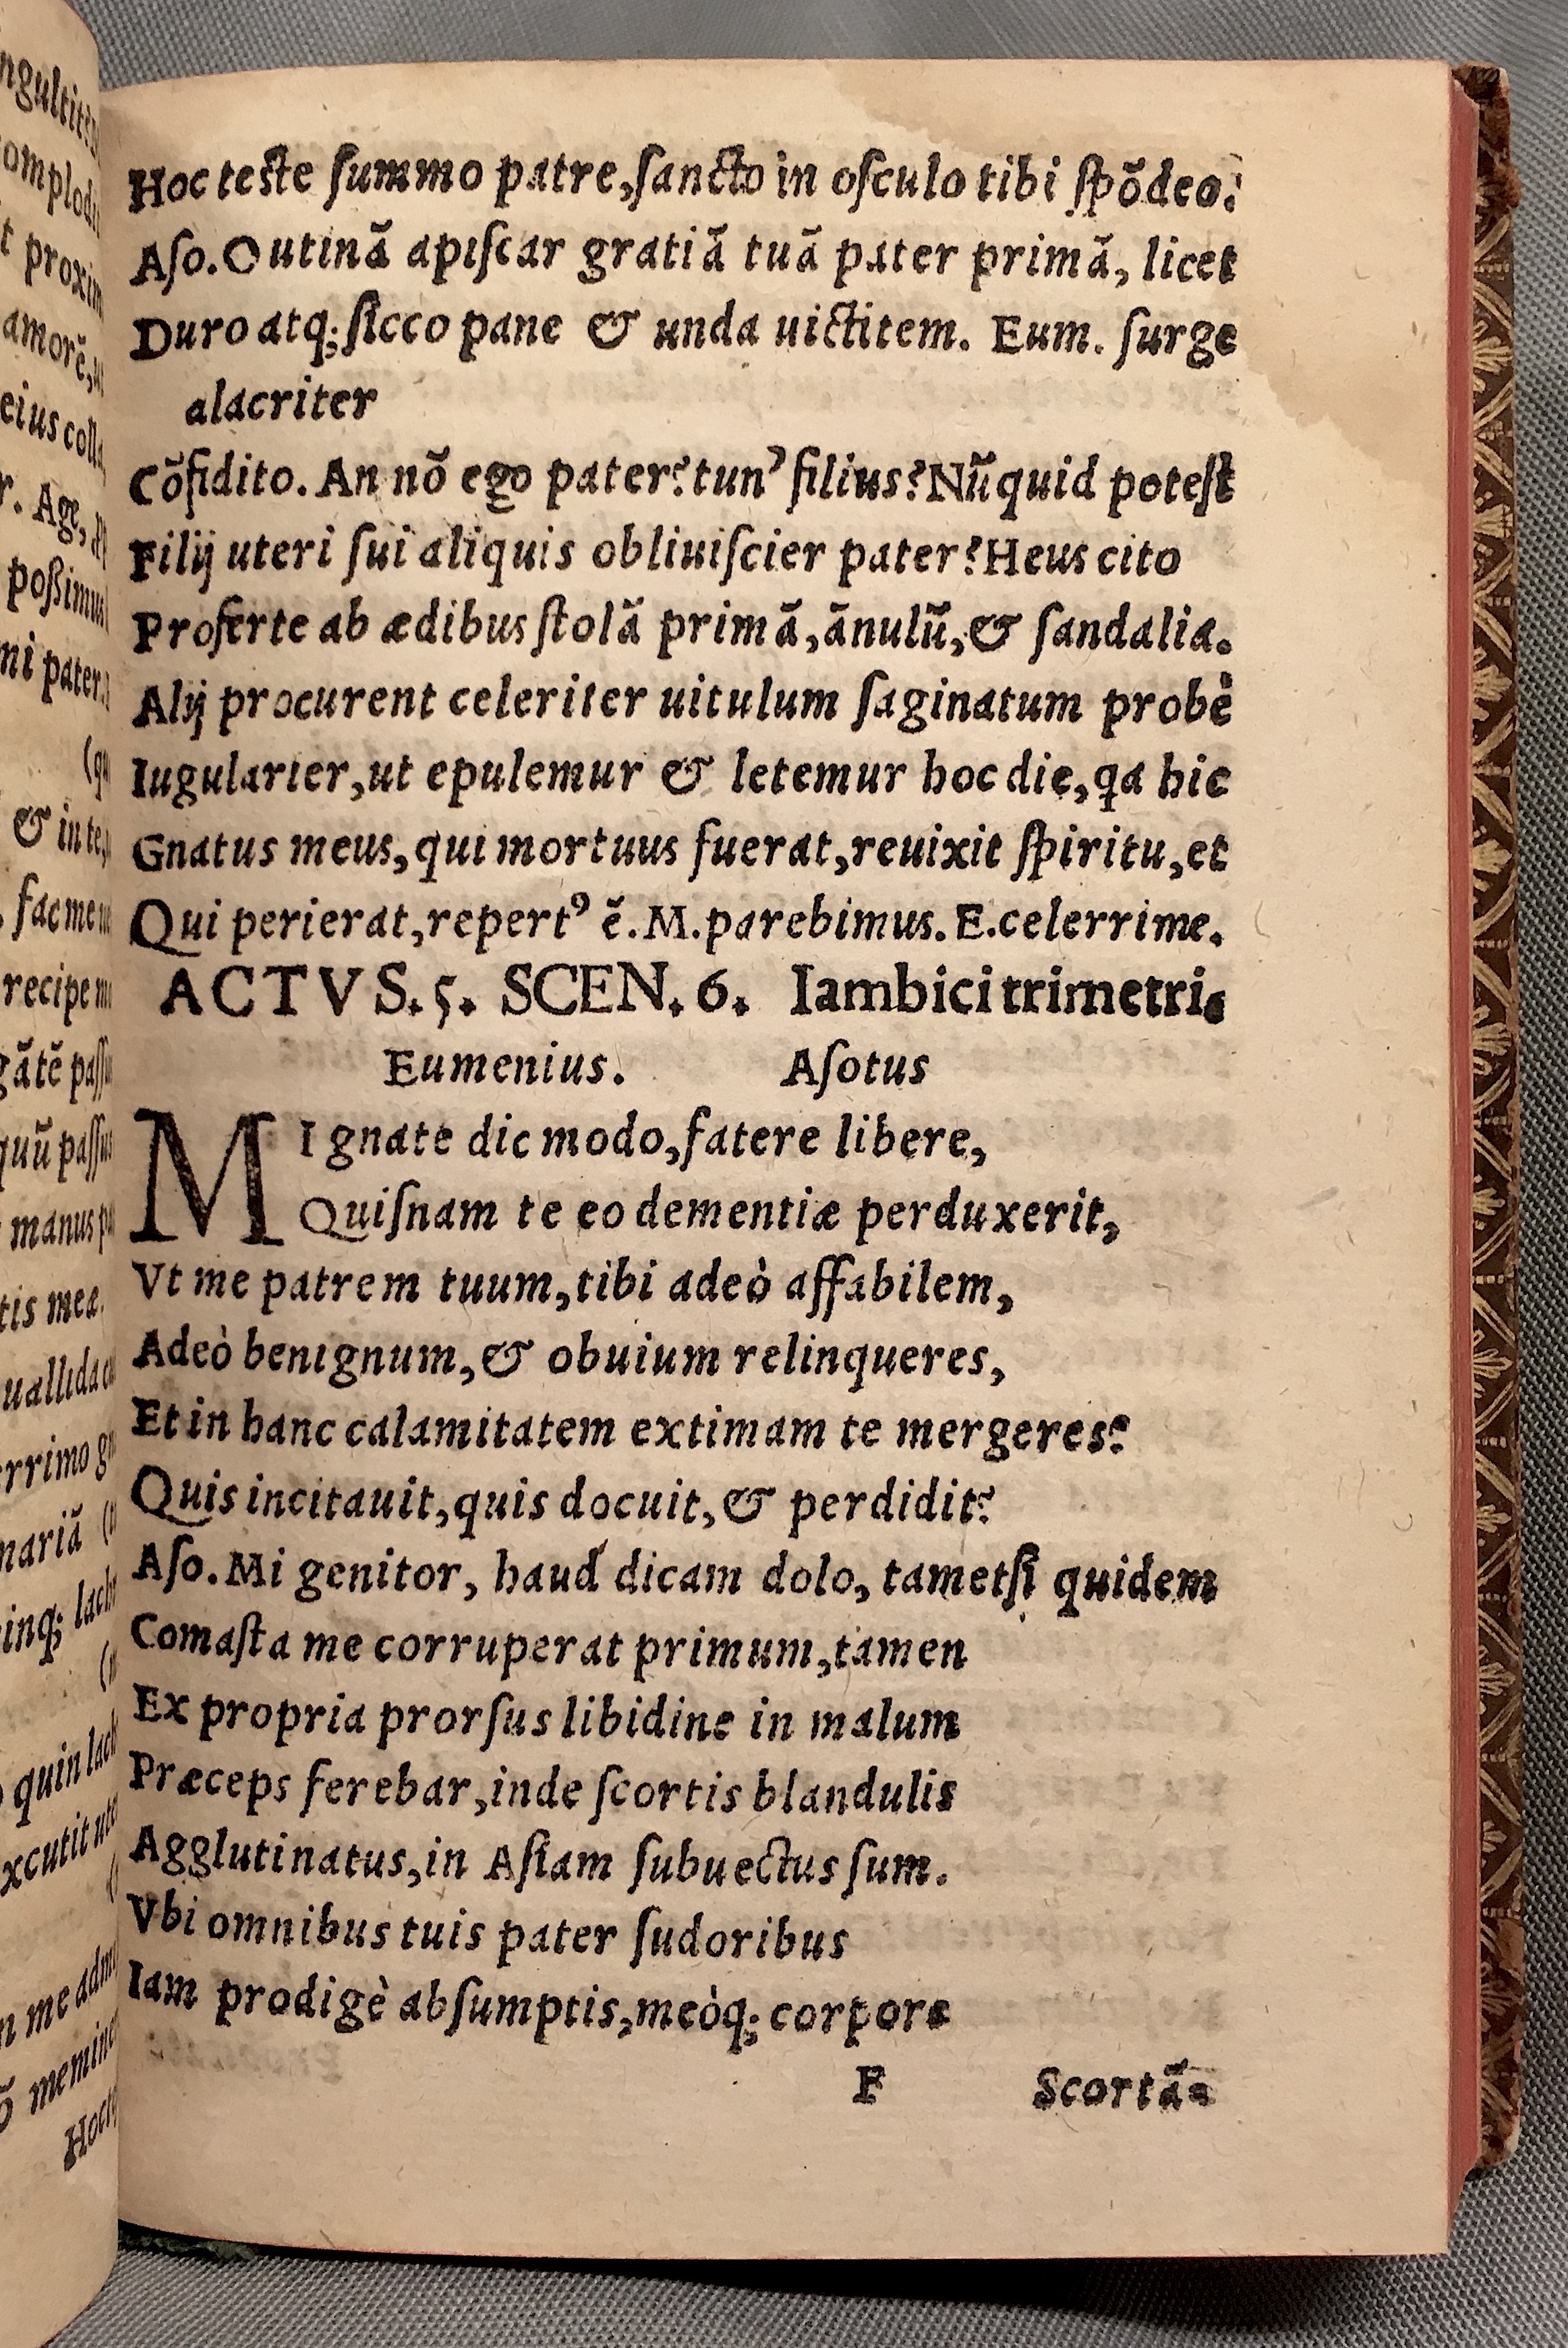 Hoc teſte ſummo patre, ſancto in oſculo tibi ſpõdeo.
Aſo. O utinã apiſcar gratiã tuã pater primã, licet
Duro atq; ſicco pane & unda uictitem. Eum. ſurge
alacriter
Cõfidito. An nõ ego pater? tun' filius? Nũquid poteſt
Filij uteri ſui aliquis obliuiſcier pater? Heus cito
Proferte ab ædibus ſtolã primã, ãnulũ, & ſandalia.
Alij procurent celeriter uitulum ſaginatum probè
Iugularier, ut epulemur & letemur hoc die, qa hic
Gnatus meus, qui mortuus fuerat, reuixit ſpiritu, et
Qui perierat, repertꝰ ẽ. M. parebimus. E. celerrime.
ACTVS. 5. SCEN. 6. Iambici trimetri.
Eumenius. Aſotus
MI gnate dic modo, fatere libere,
Quiſnam te eo dementiæ perduxerit,
Vt me patrem tuum, tibi adeò affabilem,
Adeò benignum, & obuium relinqueres,
Et in hanc calamitatem extimam te mergeres?
Quis incitauit, quis docuit, & perdidit?
Aſo. Mi genitor, haud dicam dolo, tametſi quidem
Comaſta me corruperat primum, tamen
Ex propria prorſus libidine in malum
Præceps ferebar, inde ſcortis blandulis
Agglutinatus, in Aſiam ſubuectus ſum.
Vbi omnibus tuis pater ſudoribus
Iam prodigè abſumptis, meòq; corpore
F Scortã-